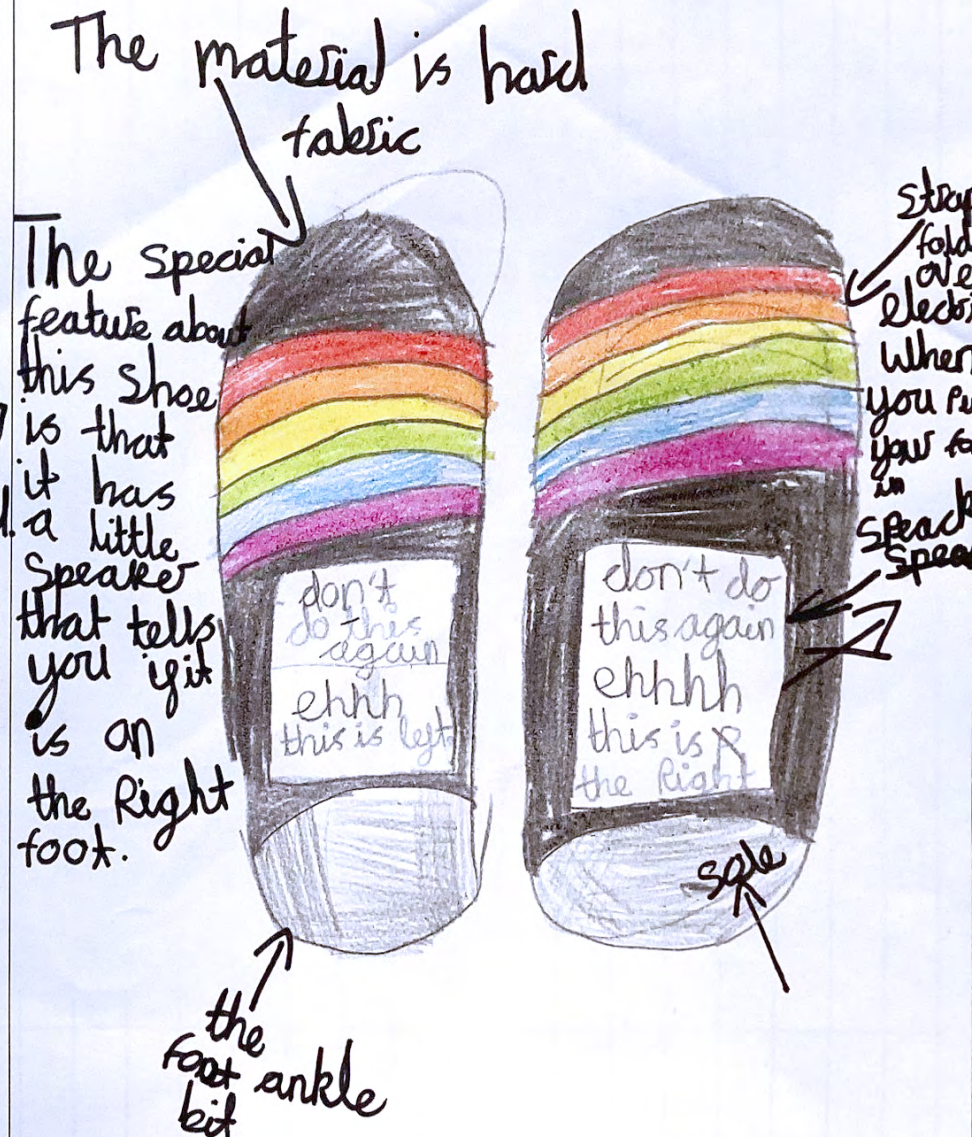 The material is hard
fabric
The special
feature about
this shoe
is that
it has
a little
speaker
that tells
you if it
is on
the Right
foot.
don't
do this
again
ehhh
this is left
don't do
this again
ehhhh
this is
the Right
fold
When
you
in
sole
the
foot ankle
bit